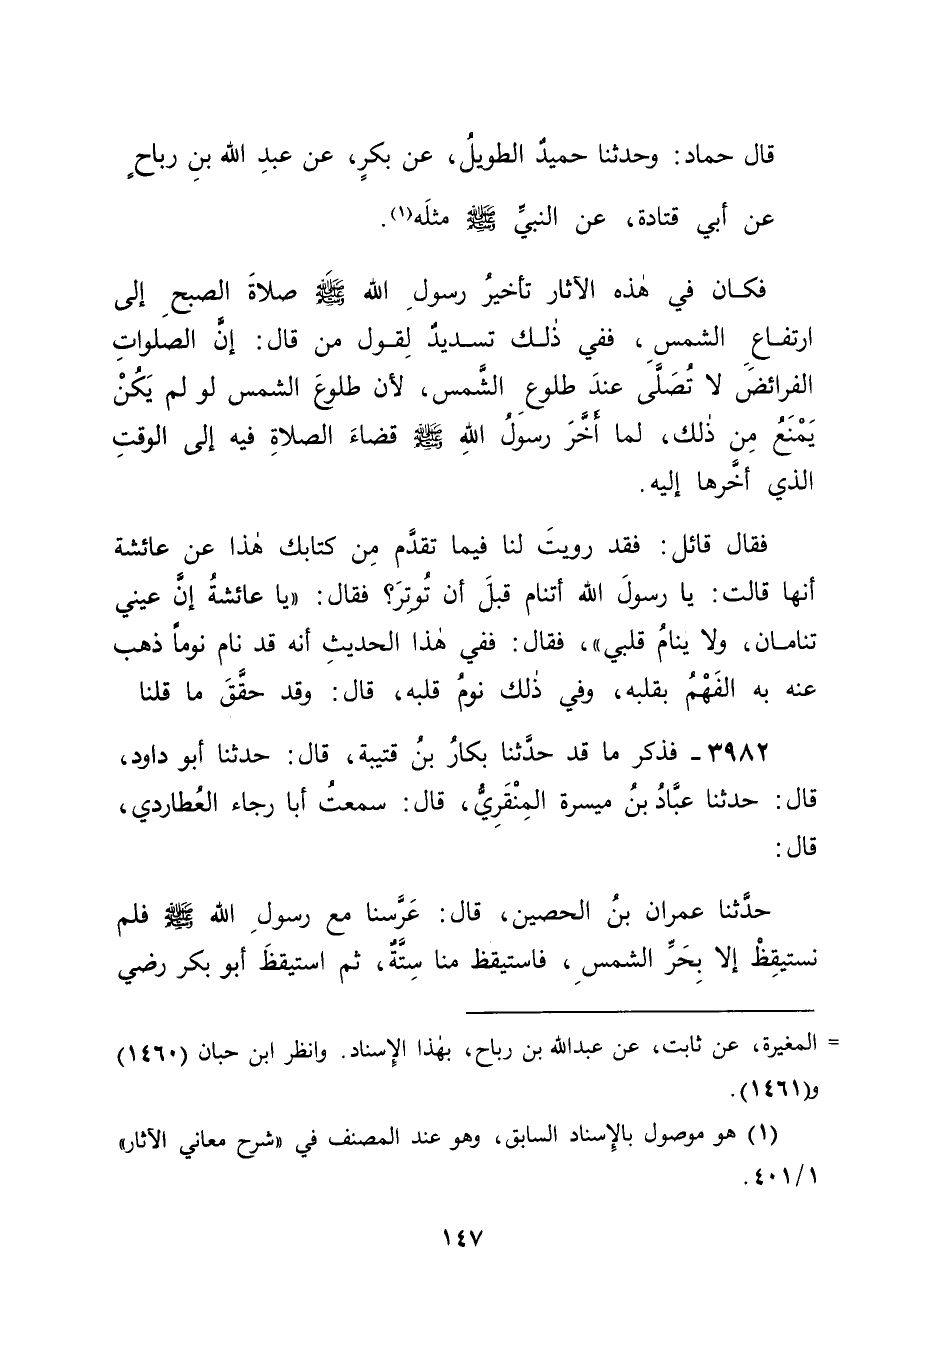 قال حماد: وحدثنا حميدٌ الطويلُ، عن بكرٍ، عن عبدِ الله بنِ رباحٍ
عن أبي قتادة، عن النبيِّ ﷺ مثلَه(١).
فكان في هٰذه الآثار تأخيرُ رسولِ الله ﷺ صلاةَ الصبحِ إلى
ارتفاعِ الشمسِ، ففي ذٰلك تسديدٌ لِقول من قال: إنَّ الصلواتِ
الفرائضَ لا تُصَلَّى عندَ طلوعِ الشَّمس، لأن طلوعَ الشمس لو لم يَكُنْ
يَمْنَعُ مِن ذٰلك، لما أَخَّرَ رسولُ اللهِ ﷺ قضاءَ الصلاةِ فيه إلى الوقتِ
الذي أخَّرها إليه.
فقال قائل: فقد رويتَ لنا فيما تقدَّم مِن كتابك هٰذا عن عائشة
أنها قالت: يا رسولَ الله أتنام قبلَ أن تُوتِرَ؟ فقال: «يا عائشةُ إنَّ عيني
تنامان، ولا ينامُ قلبي»، فقال: ففي هٰذا الحديثِ أنه قد نام نوماً ذهب
عنه به الفَهْمُ بقلبه، وفي ذٰلك نومُ قلبه، قال: وقد حقَّقَ ما قلنا
٣٩٨٢ - فذكر ما قد حدَّثنا بكارُ بنُ قتيبة، قال: حدثنا أبو داود،
قال: حدثنا عبَّادُ بنُ ميسرة المِنْقَرِيُّ، قال: سمعتُ أبا رجاء العُطاردي،
قال:
حدَّثنا عمران بنُ الحصين، قال: عَرَّسنا مع رسولِ الله ﷺ فلم
نستيقِظْ إلا بِحَرِّ الشمسِ، فاستيقظ منا سِتَّةٌ، ثم استيقظَ أبو بكر رضي
= المغيرة، عن ثابت، عن عبدالله بن رباح، بهٰذا الإسناد. وانظر ابن حبان (١٤٦٠)
و(١٤٦١).
(١) هو موصول بالإسناد السابق، وهو عند المصنف في «شرح معاني الآثار»
٤٠١/١.
١٤٧